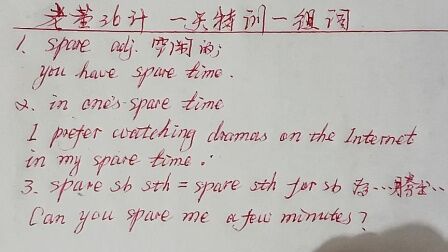 老董36计 一天特训一组词
1. spare adj. 空闲的;
you have spare time.
2. in one's spare time
I prefer watching dramas on the Internet
in my spare time.
3. spare sb sth = spare sth for sb 为…腾出…
Can you spare me a few minutes?